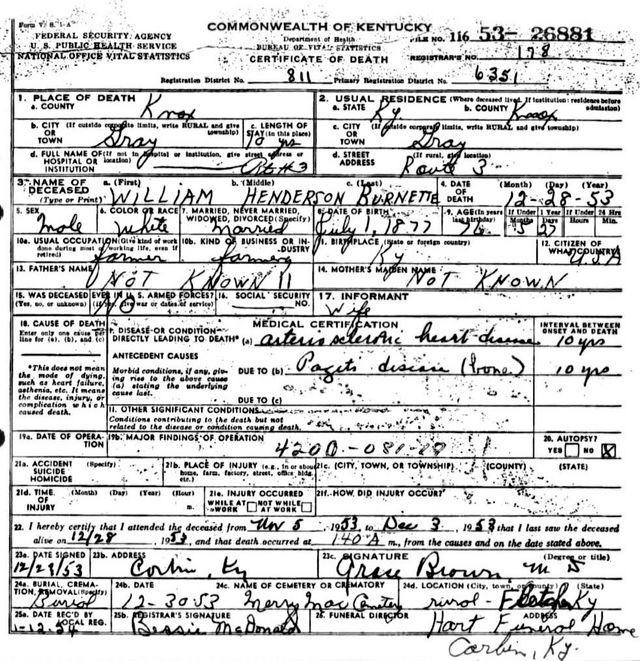 Form V. S. 1-A
FEDERAL SECURITY AGENCY
U. S. PUBLIC HEALTH SERVICE
NATIONAL OFFICE VITAL STATISTICS
COMMONWEALTH OF KENTUCKY
Department of Health
BUREAU OF VITAL STATISTICS
CERTIFICATE OF DEATH
FILE NO. 116 53- 26881
REGISTRAR'S NO. 178
Registration District No. 811 Primary Registration District No. 6351
1. PLACE OF DEATH
a. COUNTY Knox
2. USUAL RESIDENCE (Where deceased lived. If institution: residence before admission)
a. STATE Ky b. COUNTY Knox
b. CITY (If outside corporate limits, write RURAL and give township) OR TOWN Gray
c. LENGTH OF STAY (in this place) 10 yrs
c. CITY (If outside corporate limits, write RURAL and give township) OR TOWN Gray
d. FULL NAME OF (If not in hospital or institution, give street address or location) HOSPITAL OR INSTITUTION Rt #3
d. STREET ADDRESS (If rural, give location) Route 3
3. NAME OF DECEASED (Type or Print)
a. (First) WILLIAM b. (Middle) HENDERSON c. (Last) BURNETTE
4. DATE OF DEATH (Month) (Day) (Year) 12-28-53
5. SEX Male
6. COLOR OR RACE White
7. MARRIED, NEVER MARRIED, WIDOWED, DIVORCED (Specify) Married
8. DATE OF BIRTH July 1, 1877
9. AGE (In years last birthday) 76 If Under 1 Year Months 5 Days 27 If Under 24 Hrs Hours Min.
10a. USUAL OCCUPATION (Give kind of work done during most of working life, even if retired) farmer
10b. KIND OF BUSINESS OR INDUSTRY farming
11. BIRTHPLACE (State or foreign country) Ky
12. CITIZEN OF WHAT COUNTRY? USA
13. FATHER'S NAME NOT KNOWN
14. MOTHER'S MAIDEN NAME NOT KNOWN
15. WAS DECEASED EVER IN U. S. ARMED FORCES? (Yes, no, or unknown) (If yes, give war or dates of service) NO
16. SOCIAL SECURITY NO.
17. INFORMANT Wife
18. CAUSE OF DEATH
Enter only one cause per line for (a), (b), and (c)
MEDICAL CERTIFICATION
INTERVAL BETWEEN ONSET AND DEATH
I. DISEASE OR CONDITION DIRECTLY LEADING TO DEATH* (a) arteriosclerotic heart disease 10 yrs
*This does not mean the mode of dying, such as heart failure, asthenia, etc. It means the disease, injury, or complication which caused death.
ANTECEDENT CAUSES
Morbid conditions, if any, giving rise to the above cause (a) stating the underlying cause last.
DUE TO (b) Pagets disease (bone) 10 yrs
DUE TO (c)
II. OTHER SIGNIFICANT CONDITIONS
Conditions contributing to the death but not related to the disease or condition causing death.
19a. DATE OF OPERATION
19b. MAJOR FINDINGS OF OPERATION
4200-081-28
20. AUTOPSY? YES NO X
21a. ACCIDENT SUICIDE HOMICIDE (Specify)
21b. PLACE OF INJURY (e.g., in or about home, farm, factory, street, office bldg., etc.)
21c. (CITY, TOWN, OR TOWNSHIP) (COUNTY) (STATE)
21d. TIME OF INJURY (Month) (Day) (Year) (Hour)
21e. INJURY OCCURRED WHILE AT WORK NOT WHILE AT WORK
21f. HOW DID INJURY OCCUR?
22. I hereby certify that I attended the deceased from Nov 5, 1953, to Dec 3, 1953 that I last saw the deceased
alive on 12/28, 1953, and that death occurred at 140 A m., from the causes and on the date stated above.
23a. DATE SIGNED 12/28/53
23b. ADDRESS Corbin, Ky
23c. SIGNATURE (Degree or title) Grace Brown, M D
24a. BURIAL, CREMATION, REMOVAL (Specify) Burial
24b. DATE 12-30-53
24c. NAME OF CEMETERY OR CREMATORY Merry Mac Cemetery
24d. LOCATION (City, town, or county) (State) rural Fletcher Ky
25a. DATE REC'D BY LOCAL REG. 1-12-54
25b. REGISTRAR'S SIGNATURE Bessie McDonald
26. FUNERAL DIRECTOR ADDRESS Hart Funeral Home
Corbin, Ky.